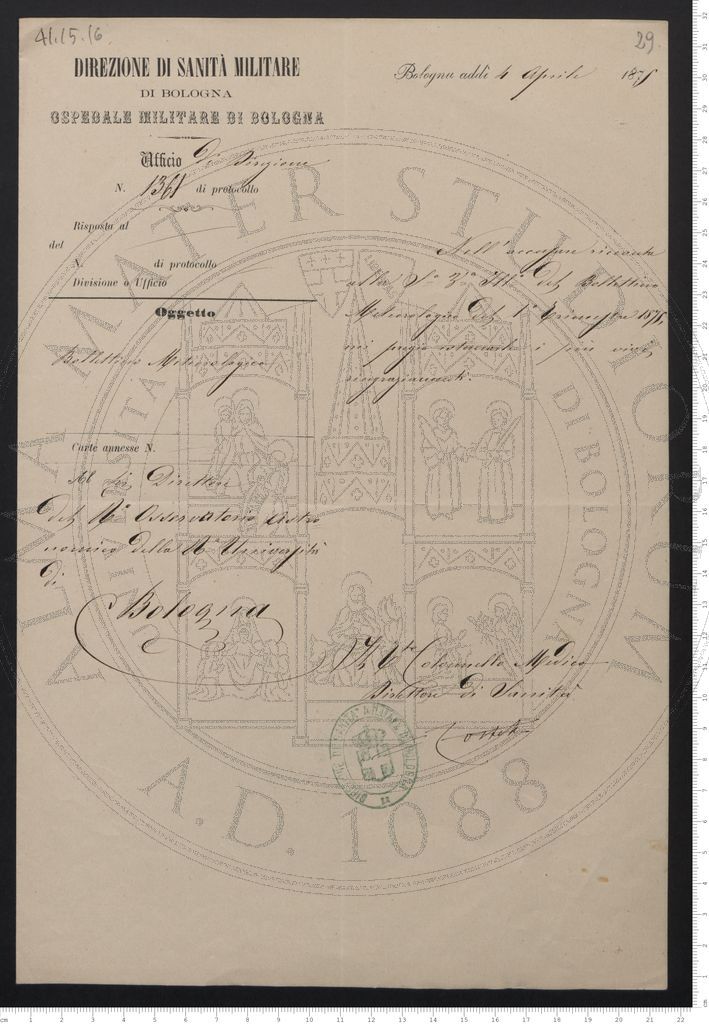 41.15.16
29.
DIREZIONE DI SANITÀ MILITARE
DI BOLOGNA
OSPEDALE MILITARE DI BOLOGNA
Bologna addì 4 Aprile 1875
Ufficio Direzione
N. 1361 di protocollo
Risposta al
del
N. di protocollo
Divisione o Ufficio
Oggetto
Bollettino Meteorologico
Carte annesse N.
Al Sig. Direttore
del R.° Osservatorio Astro
nomico della R.ª Università
di
Bologna
Nell'accusare ricevuta
alla S.ª V.ª Ill.ª del Bollettino
Meteorologico del 1° Trimestre 1875,
mi pregio i più vivi
ringraziamenti.
Il Colonnello Medico
Direttore di Sanità
ALMA MATER STUDIORUM
UNIVERSITÀ DI BOLOGNA
A.D. 1088